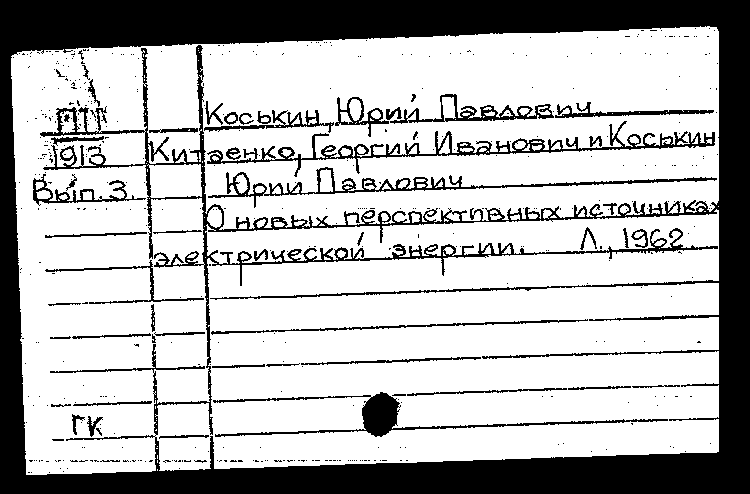 ПТТ Коськин, Юрий Павлович
1913 Китаенко, Георгий Иванович и Коськин
Вып. 3. Юрий Павлович
О новых перспективных источниках
электрической энергии. Л., 1962.
ГК